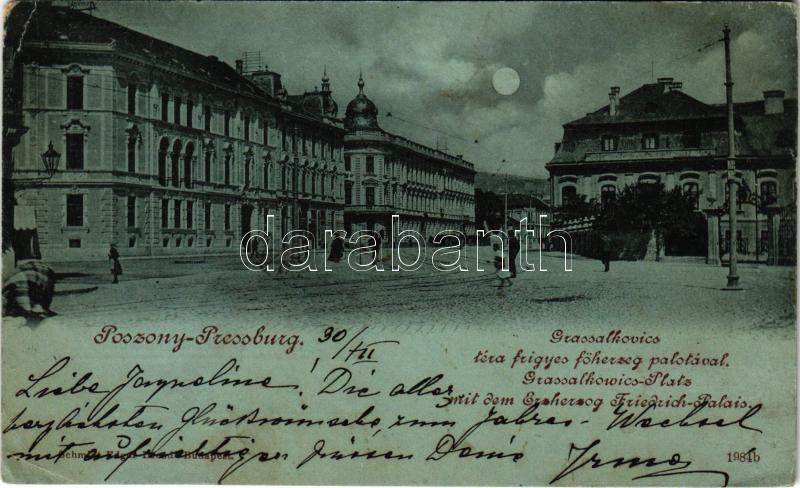 darabanth
Poszony-Pressburg. 30/XII
Grassalkovics
téra frigyes főherzeg palotával.
Grassalkowics-Platz
mit dem Erzherzog Friedrich-Palais.
Liebe Jacqueline. Die aller
herzlichsten Glückwünsche zum Jahres-Wechsel
mit aufrichtigen Grüssen Deine Irma
Schmidt Edgar Budapest.
1984b